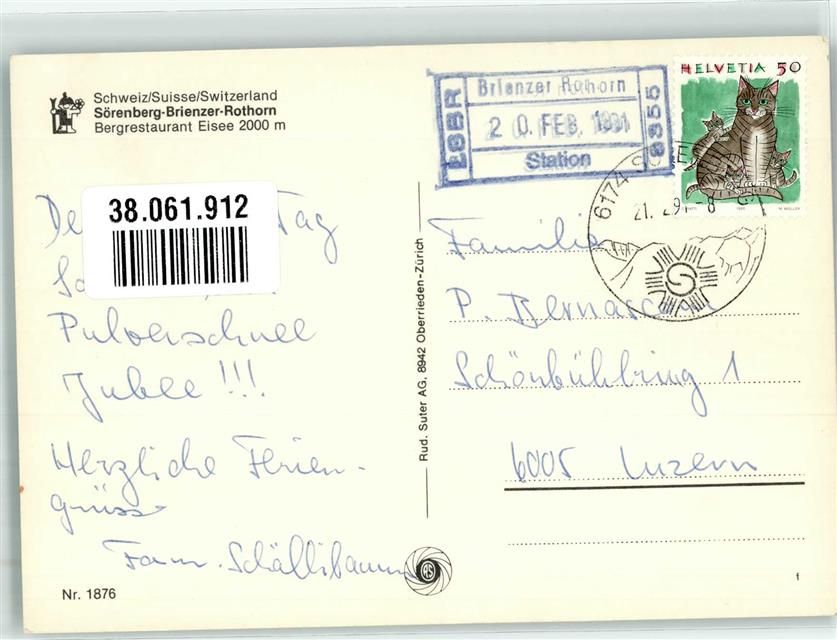 Schweiz/Suisse/Switzerland
Sörenberg-Brienzer-Rothorn
Bergrestaurant Eisee 2000 m
LSBR
Brienzer Rothorn
20. FEB. 1991
Station
8355
HELVETIA 50
6174 SÖRE
21. 29.-8
38.061.912
Tag
Pulverschnee
Jubee !!!
Herzliche Ferien-
grüsse
Fam. Schällibaum
Familie
P. Bernasc
Schönbühlring 1
6005 Luzern
Rud. Suter AG, 8942 Oberrieden-Zürich
RS
Nr. 1876
1